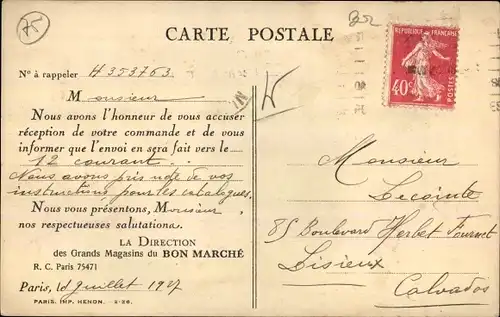 75
B52
CARTE POSTALE
RÉPUBLIQUE FRANÇAISE
40c
POSTES
N° à rappeler H 353763
Monsieur
Nous avons l'honneur de vous accuser
réception de votre commande et de vous
informer que l'envoi en sera fait vers le
12 courant.
Nous avons pris note de vos
instructions pour les catalogues.
Nous vous présentons, Monsieur
nos respectueuses salutations.
LA DIRECTION
des Grands Magasins du BON MARCHÉ
R. C. Paris 75471
Paris, le juillet 1927
PARIS. IMP. HENON. - 2-26.
Monsieur
Lecointe
85 Boulevard Herbet Fournet
Lisieux
Calvados